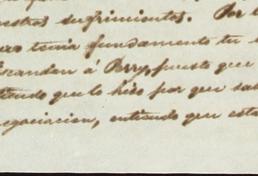 nestros sufrimientos. Por
tenia fundamento tu
Escandon á Perry, puesto que
tiendo que lo hizo por que sa
egociacion, entiendo que esta